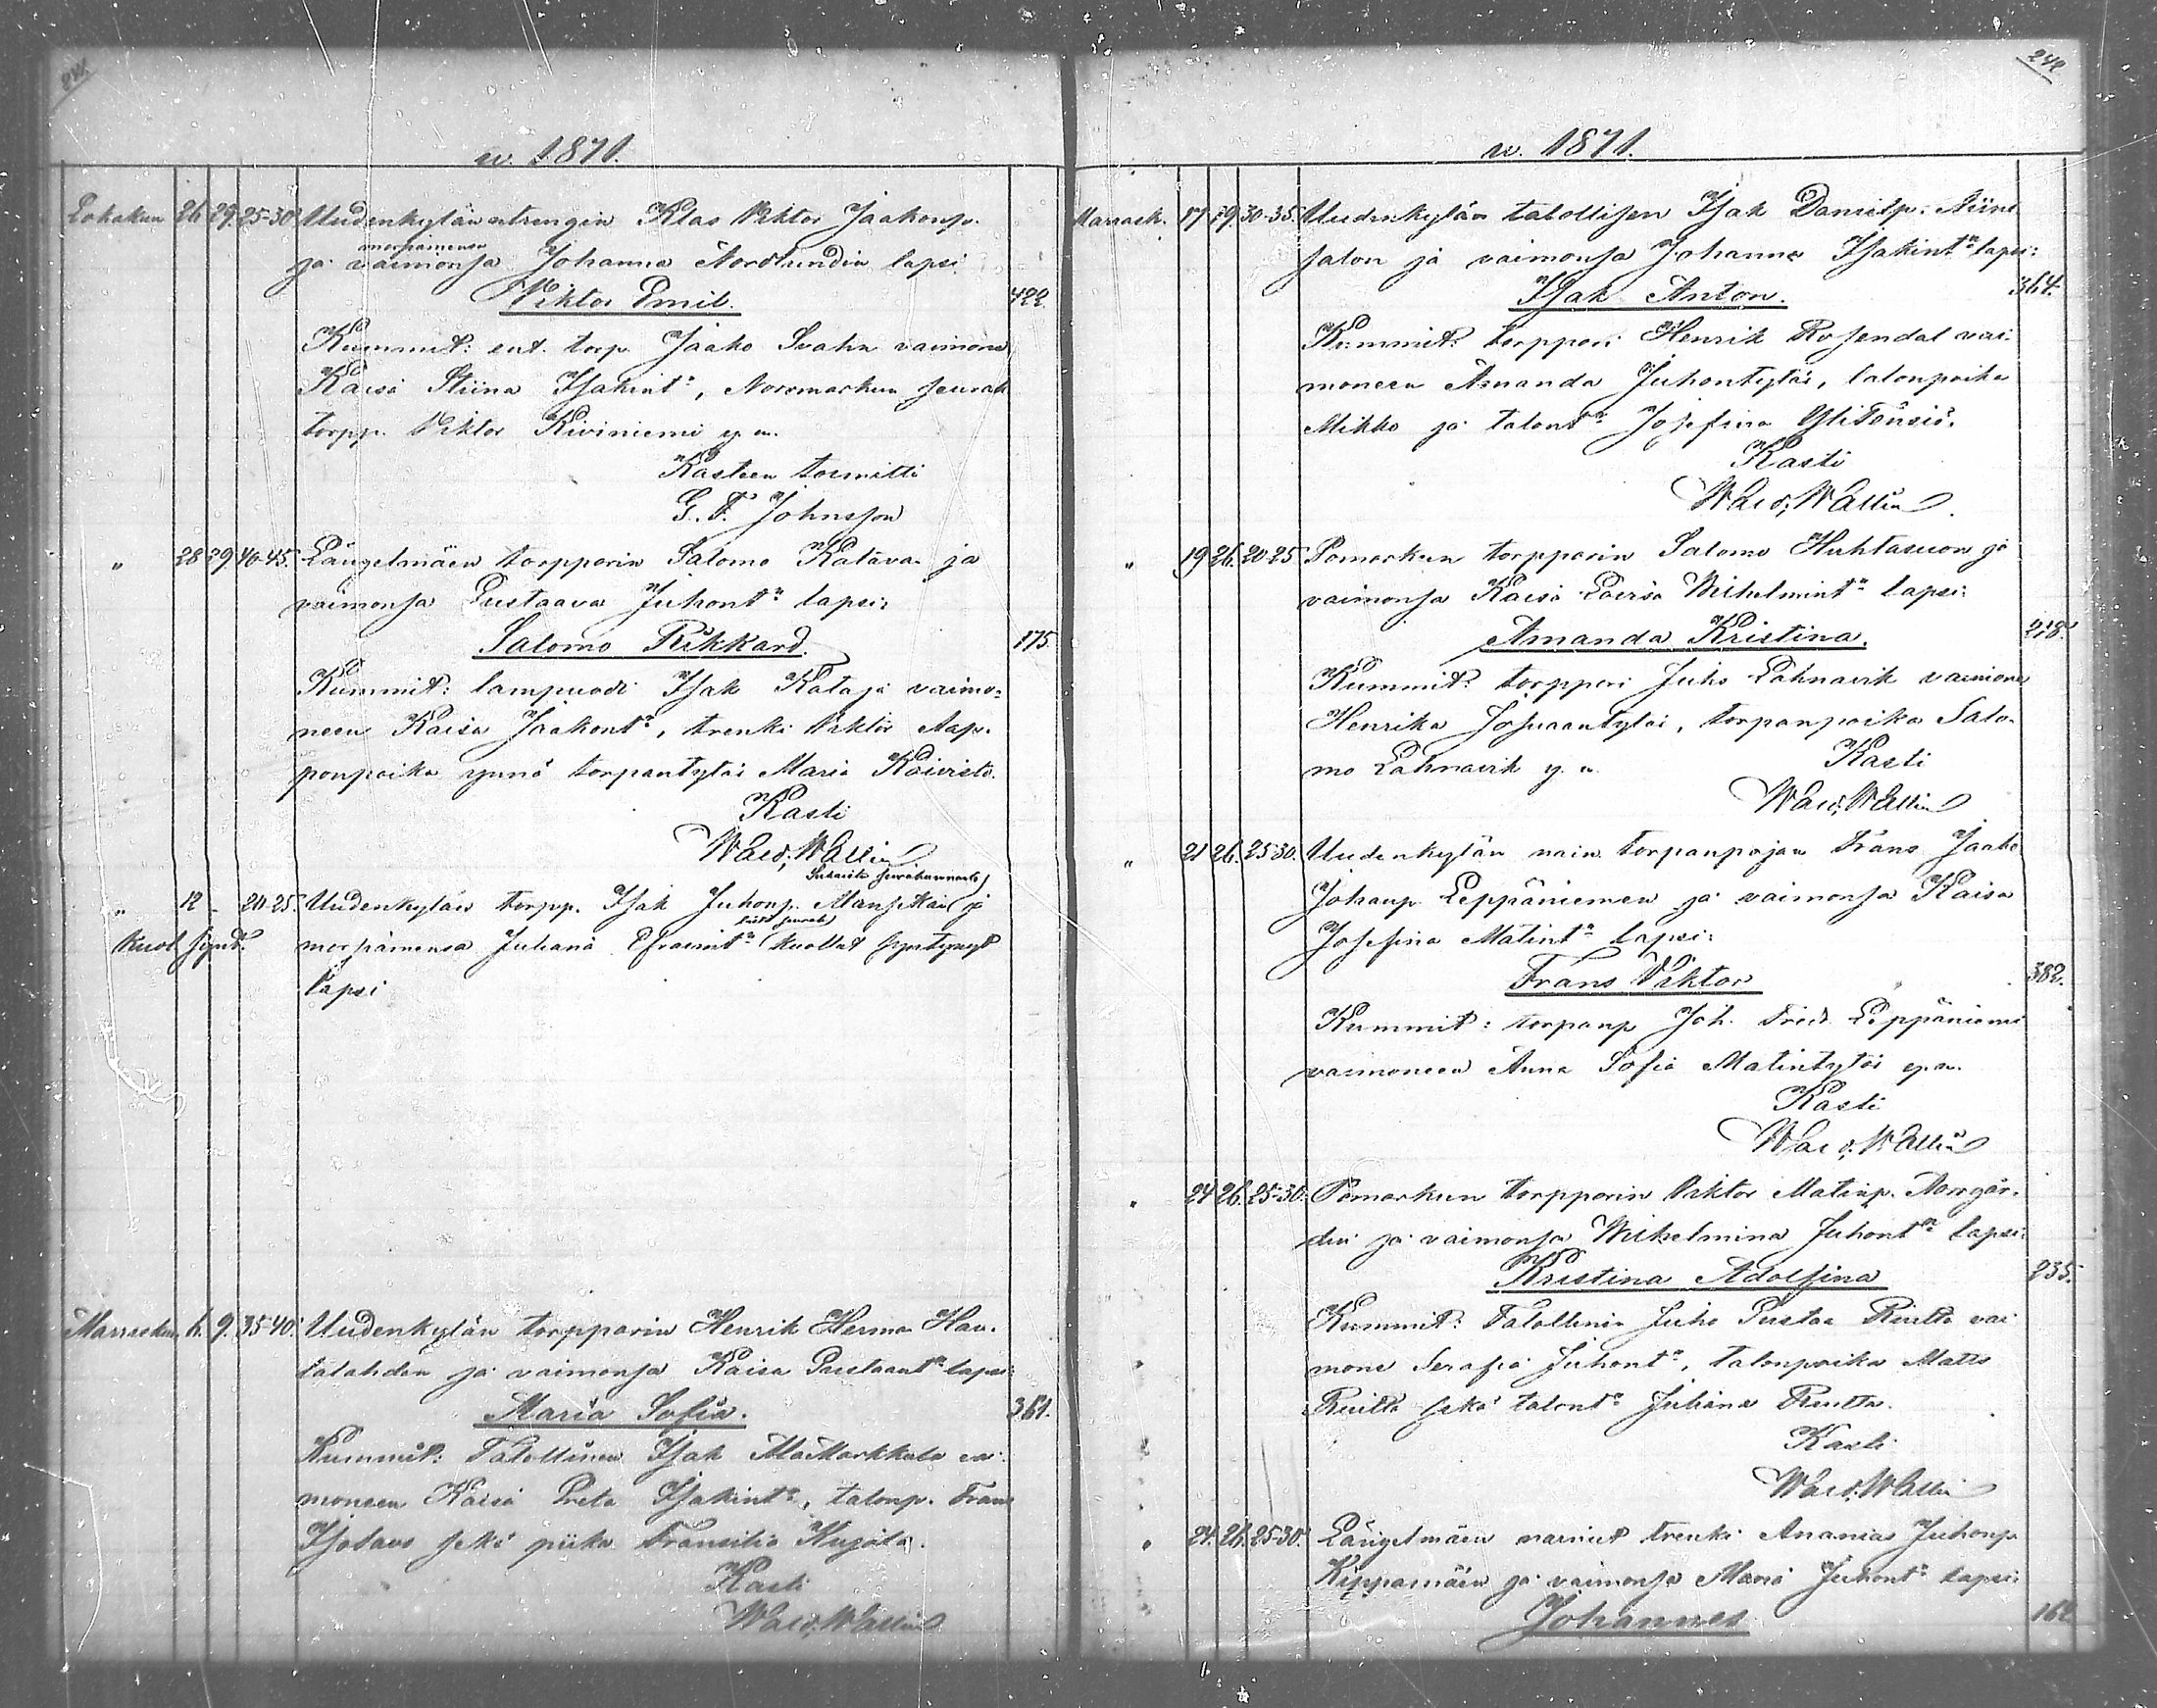 242
w. 1871.
Lokakuu 26 29. 25-30 Uudenkylän trengin Klas Viktor Jaakonp.
morsiamensa
ja vaimonsa Johanna Nordlundin lapsi
Viktor Emil. 422.
Kummit: ent. torp Jaako Svahn vaimone
Kaisa Stiina Isakint:, Norrmarkun seurak
torpp. Viktor Kiviniemi y. m.
Kasteen toimitti
G. F. Johnsson
" 28 29 40-45. Längelmäen torpparin Salomo Katavan ja
vaimonsa Gustaava Juhont:n lapsi:
Salomo Rikkard. 175.
Kummit: lampuodi Isak Kataja vaimo-
neen Kaisa Jaakont:, trenki Viktor Aap-
ponpoika ynnä torpantytär Maria Koivisto.
Kasti
Wald. Wallin
" 12 - 20-25. Uudenkylän torpp. Isak Juhonp. ja
Kuol. synt. morsiamensa Juliana Efraimt:n kuollut syntynyt
lapsi
Marraskuu 6. 9. 35-40. Uudenkylän torpparin Henrik Herman Hau-
talahden ja vaimonsa Kaisa Gustaant:n lapsi:
Maria Sofia. 361.
Kummit: Talollinen Isak AlaMarkkula vai-
moneen Kaisa Greta Isakint:, talonp. Frans
Isotavo sekä piika Fransilia Kujala.
Kasti
Wald. Wallin
w. 1871.
Marrask. 17 19. 30-35. Uudenkylän talollisen Isak Danielp. Niini
salon ja vaimonsa Johanna Isakint:n lapsi:
Isak Anton. 364.
Kummit: torppari Henrik Rosendal vai-
moneen Amanda Juhontytär, talonpoika
Mikko ja talont:r Josefina Ylitensiö.
Kasti
Wald. Wallin
" 19 26. 20-25 Pomarkun torpparin Salomo Huhtasuon ja
vaimonsa Kaisa Loviisa Wilhelmint:n lapsi:
Amanda Kristina. 218.
Kummit: torppari Juho Lahnavik vaimone
Henrika Josuaantytär, torpanpoika Salo-
mo Lahnavik y. m. Kasti
Wald. Wallin
" 21 26. 25-30. Uudenkylän nain. torpanpojan Frans Jaako
Johanp. Leppäniemen ja vaimonsa Kaisa
Josefina Matint:n lapsi:
Frans Viktor 382.
Kummit: torpanp Joh. Fred. Leppäniemi
vaimoneen Anna Sofia Matintytär y. m.
Kasti
Wald. Wallin
" 24 26. 25-30. Pomarkun torpparin Viktor Matinp. Norrgår-
din ja vaimonsa Wilhelmina Juhont:n lapsi:
Kristina Adolfina 235.
Kummit: Talollinen Juho Gustaa Riutta vai
mone Serafia Juhont:, talonpoika Matts
Riutta sekä talont:r Juliana Riutta.
Kasti
Wald. Wallin
" 24. 26. 25-30. Längelmäen nainut trenki Ananias Juhonp.
Kippamäen ja vaimonsa Maria Juhont:n lapsi:
Johannes 162